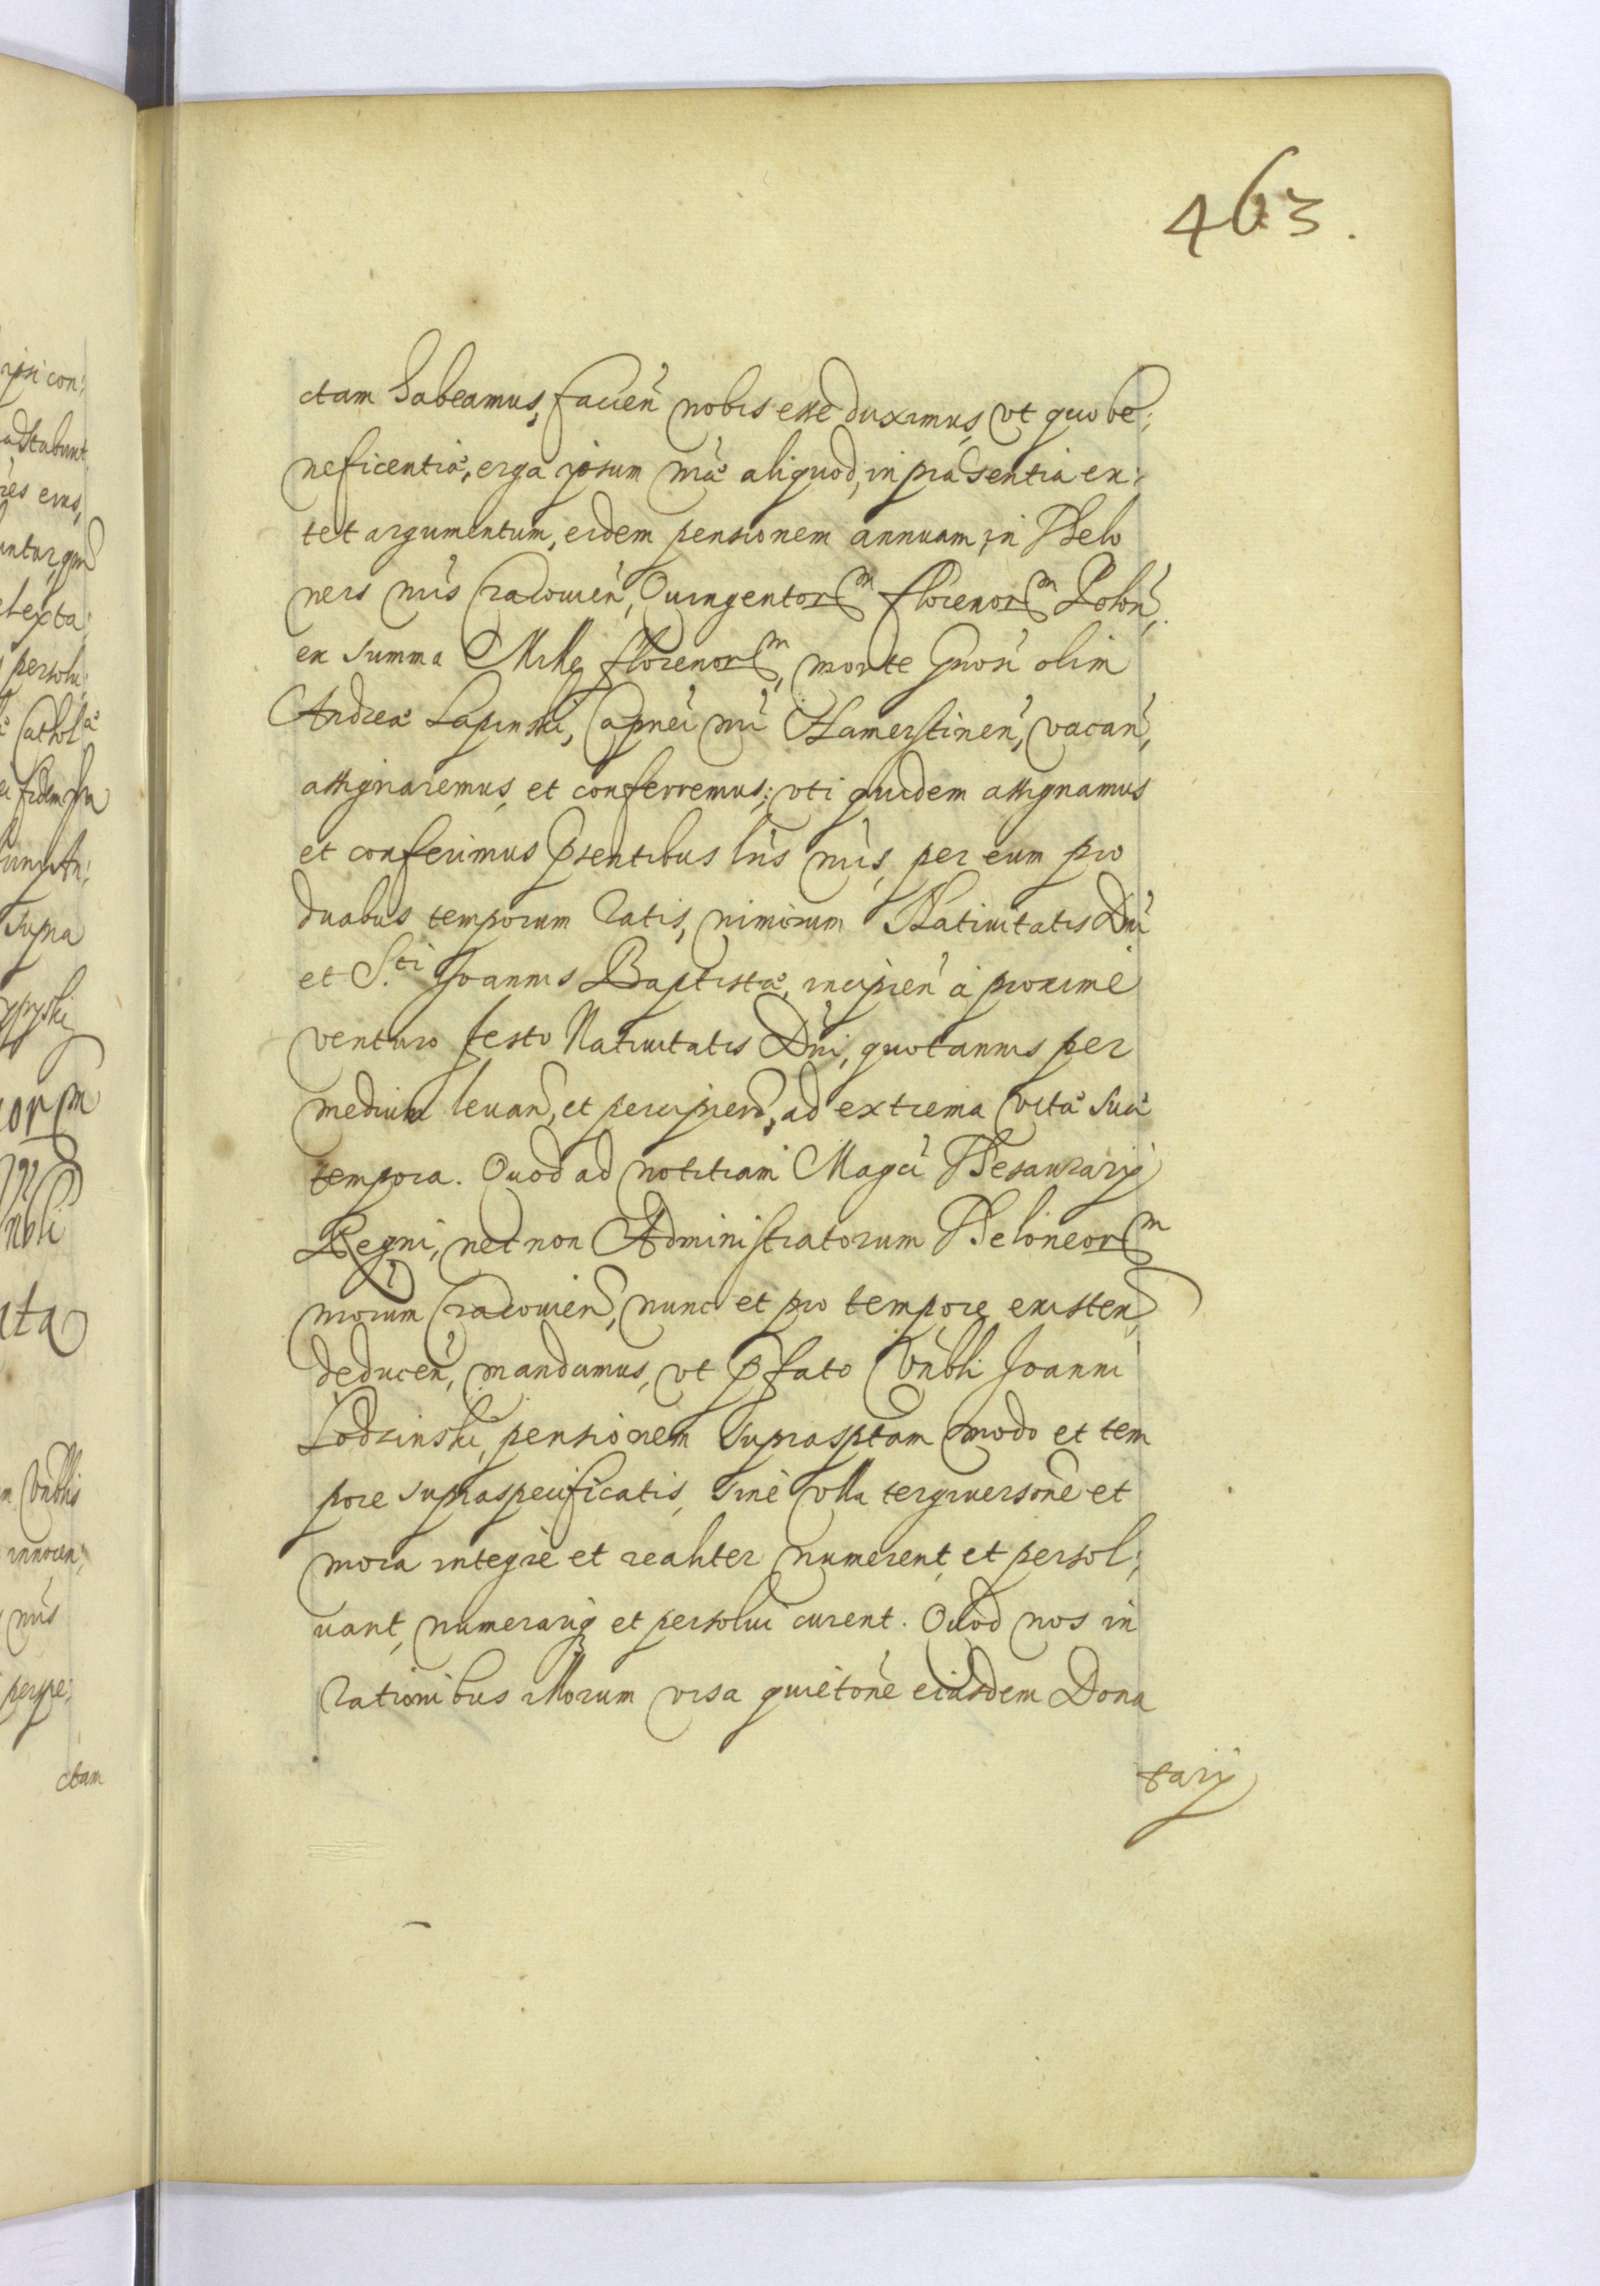 463.
ctam habeamus, facien̄ nobis esse duximus, vt quo be:
neficentiæ, erga ipsum nr̄æ aliquod, in præsentia ex:
tet argumentum, eidem pensionem annuam, in Thelo
neis nr̄is Cracouien̄, Quingentorum florenorum Polon̄,
ex summa Mille florenorum, morte Gnosi olim
Andreæ Lapinski, Capnei nr̄i Hamerstinen̄, vacan̄,
assignaremus, et conferremus; vti quidem assignamus
et conferimus p̄sentibus lr̄is nr̄is, per eum pro
duabus temporum ratis, nimirum Natiuitatis Dn̄i
et S.ti Joannis Baptistæ, incipien̄ à proximè
venturo festo Natiuitatis Dn̄i, quotannis per
medium leuan̄, et percipien̄, ad extrema vitæ suæ
tempora. Quod ad notitiam Magci Thesaurarij
Regni, nec non Administratorum Theloneorum
nr̄orum Cracouien̄, nunc et pro tempore existen̄,
deducen̄, mandamus, vt p̄fato Vrn̄bli Joanni
Lodzinski, pensionem suprasptam modo et tem
pore supraspecificatis, sinè vlla tergiuersōne et
mora integrè et realiter numerent, et persol:
uant, numerariq et persolui curent. Quod nos in
rationibus illorum visa quietōne eiusdem Dona
tarij